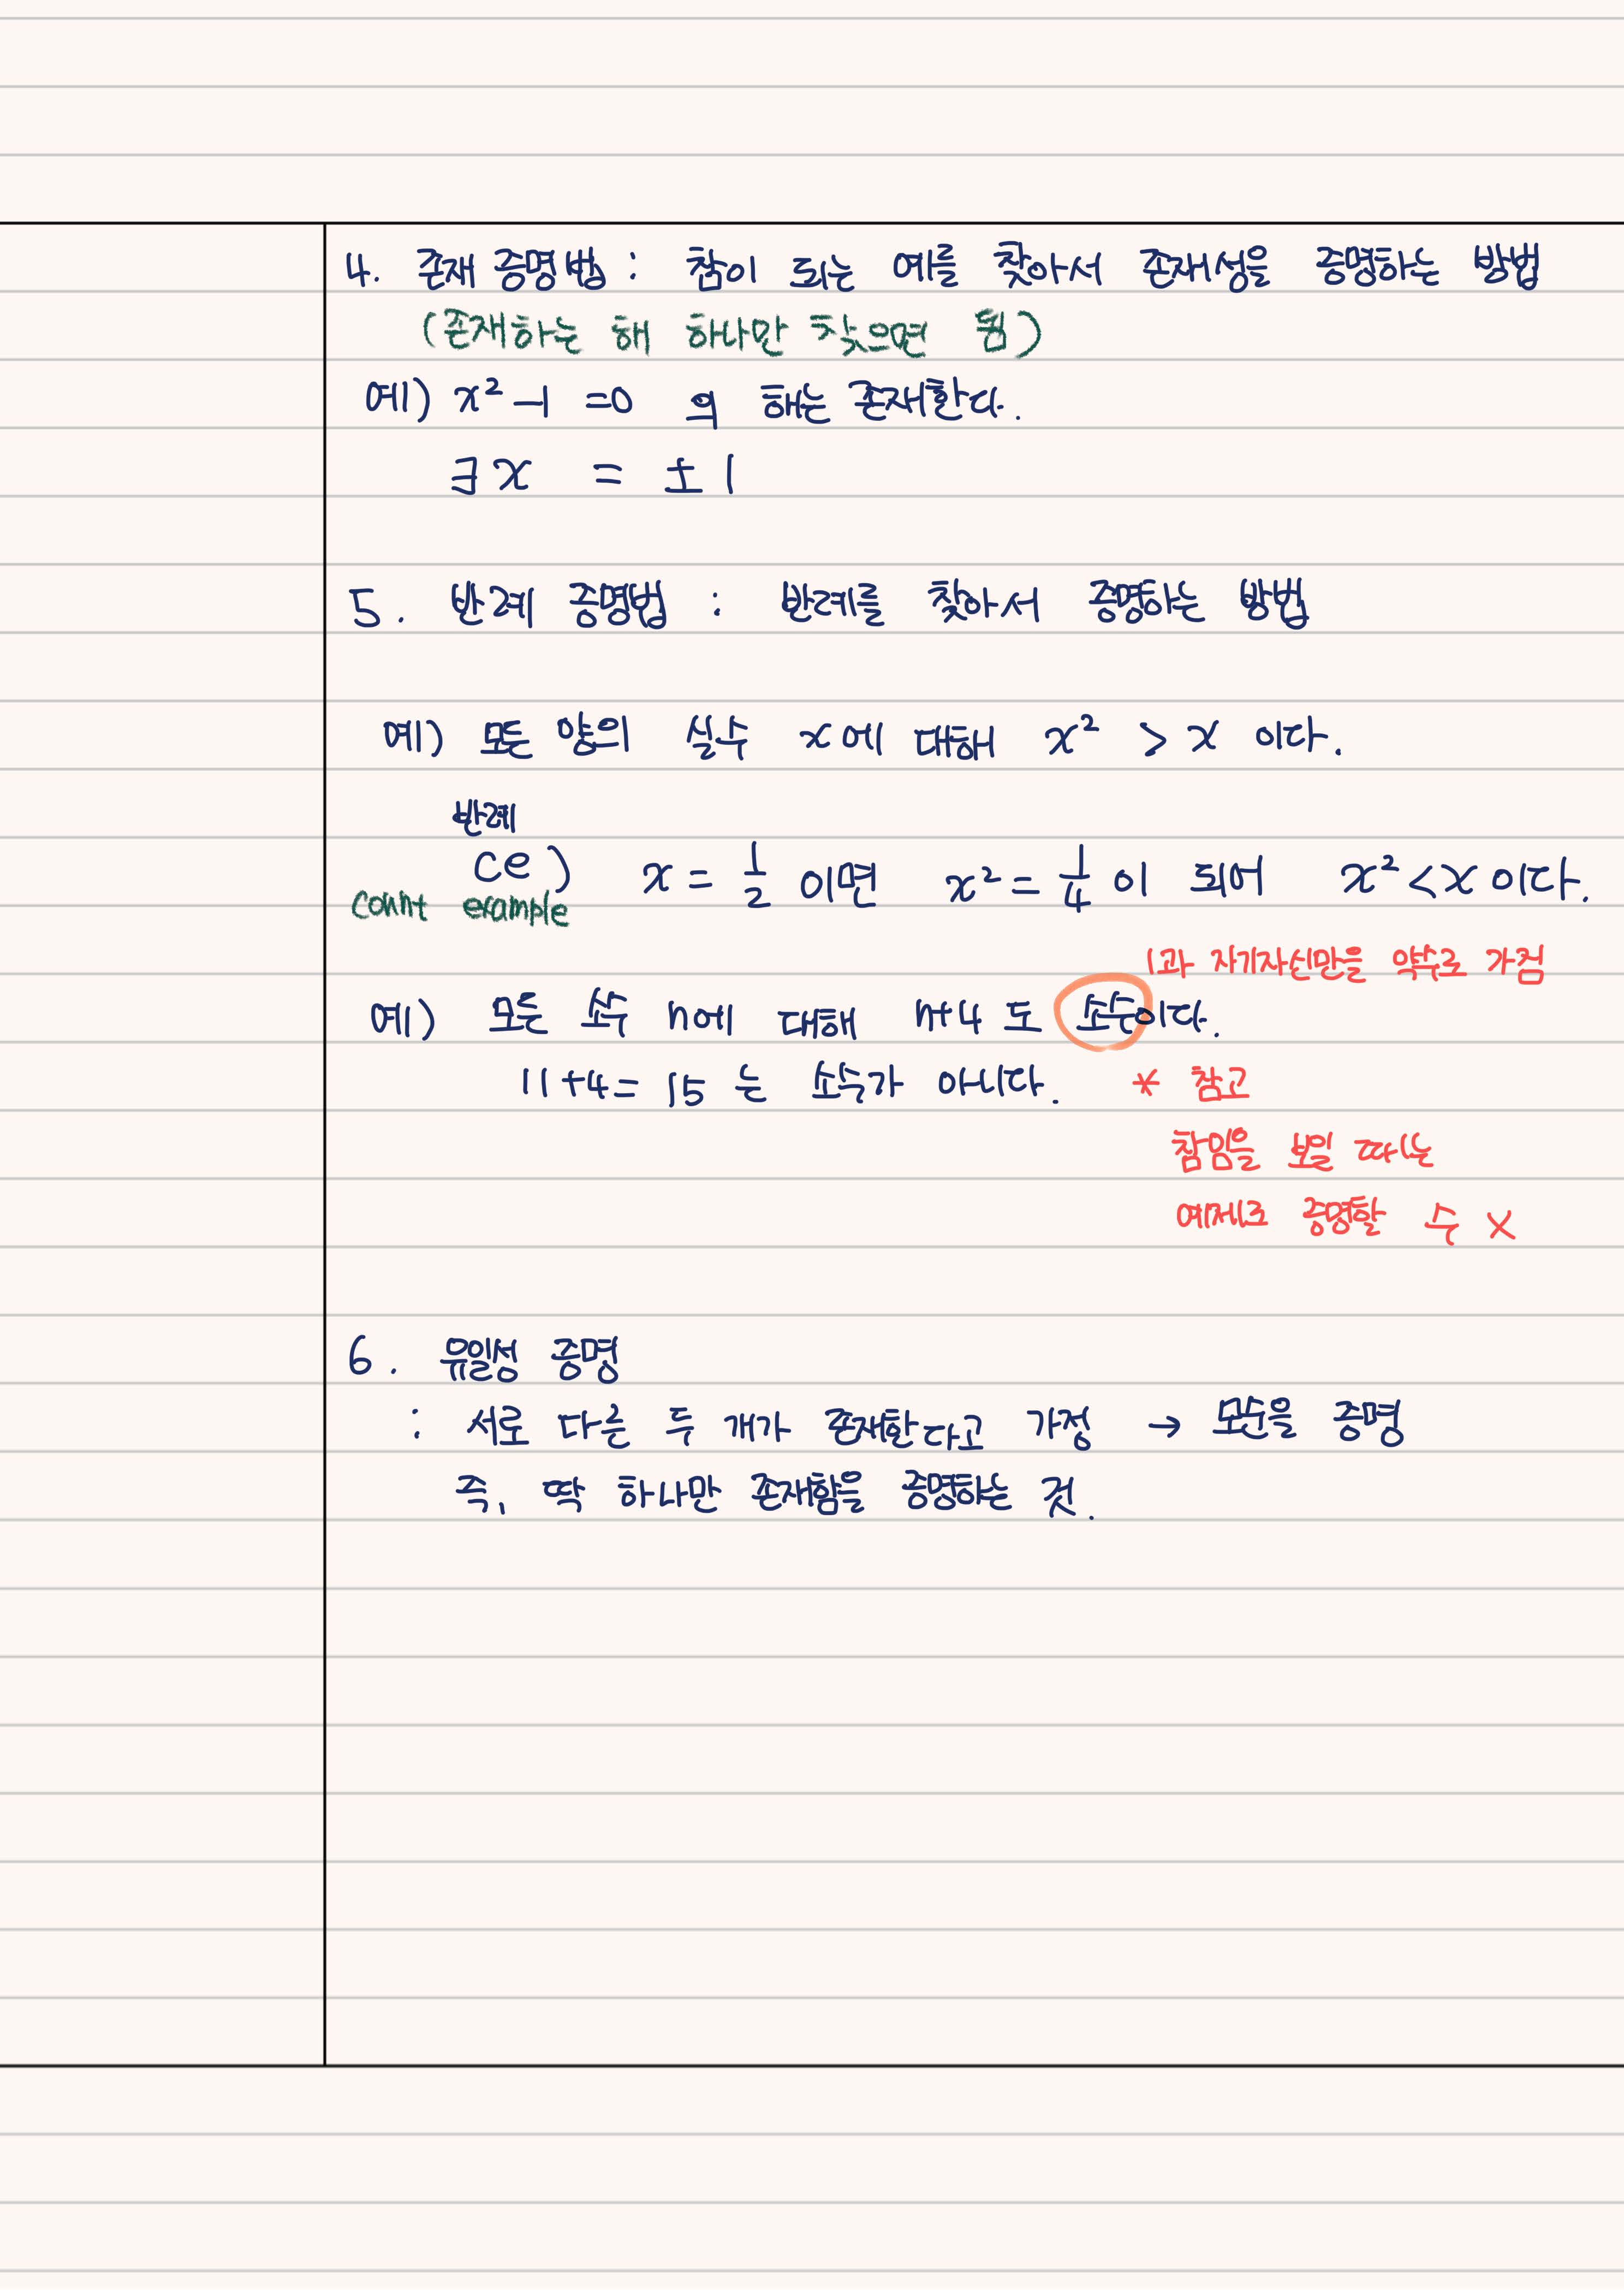 4. 존재 증명법 : 참이 되는 예를 찾아서 존재성을 증명하는 방법
(존재하는 해 하나만 찾으면 됨)
예) x² - 1 = 0 의 해는 존재한다.
∃x = ± 1
5. 반례 증명법 : 반례를 찾아서 증명하는 방법
예) 모든 양의 실수 x에 대해 x² > x 이다.
반례
ce) x = 1/2 이면 x² = 1/4 이 되어 x² < x 이다.
Count example
1과 자기자신만을 약수로 가짐
예) 모든 소수 n에 대해 n+4 도 소수이다.
11+4 = 15 는 소수가 아니다. * 참고
참임을 보일 때는
예제로 증명할 수 X
6. 유일성 증명
: 서로 다른 두 개가 존재한다고 가정 → 모순을 증명
즉, 딱 하나만 존재함을 증명하는 것.